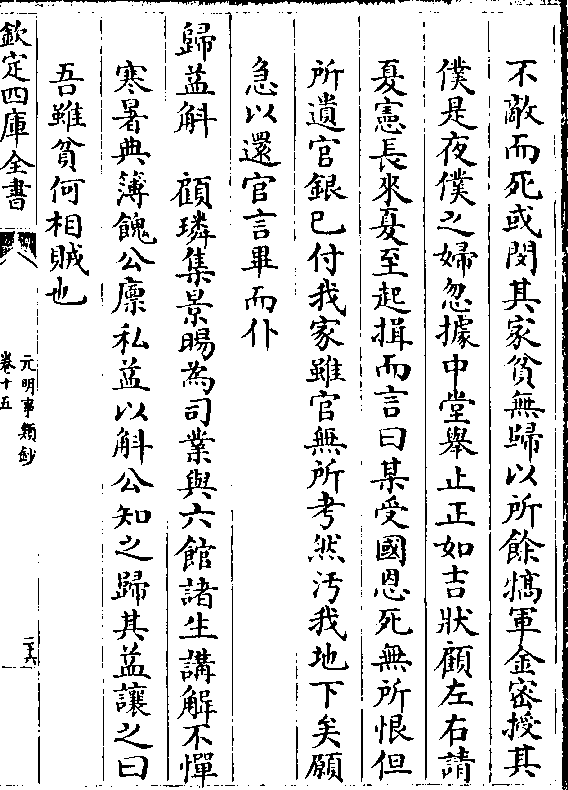 不敵而死或閔其家貧無歸以所餘犒軍金密授其
僕是夜僕之婦忽據中堂舉止正如吉狀顧左右請
夏憲長來夏至起揖而言曰某受國恩死無所恨但
所遺官銀已付我家雖官無所考然汚我地下矣願
急以還官言畢而仆
歸益斛　顧璘集景暘為司業與六館諸生講解不憚
寒暑典簿餽公廪私益以斛公知之歸其益讓之曰
吾雖貧何相賊也
欽定四庫全書
元明事類鈔
卷十五
二六